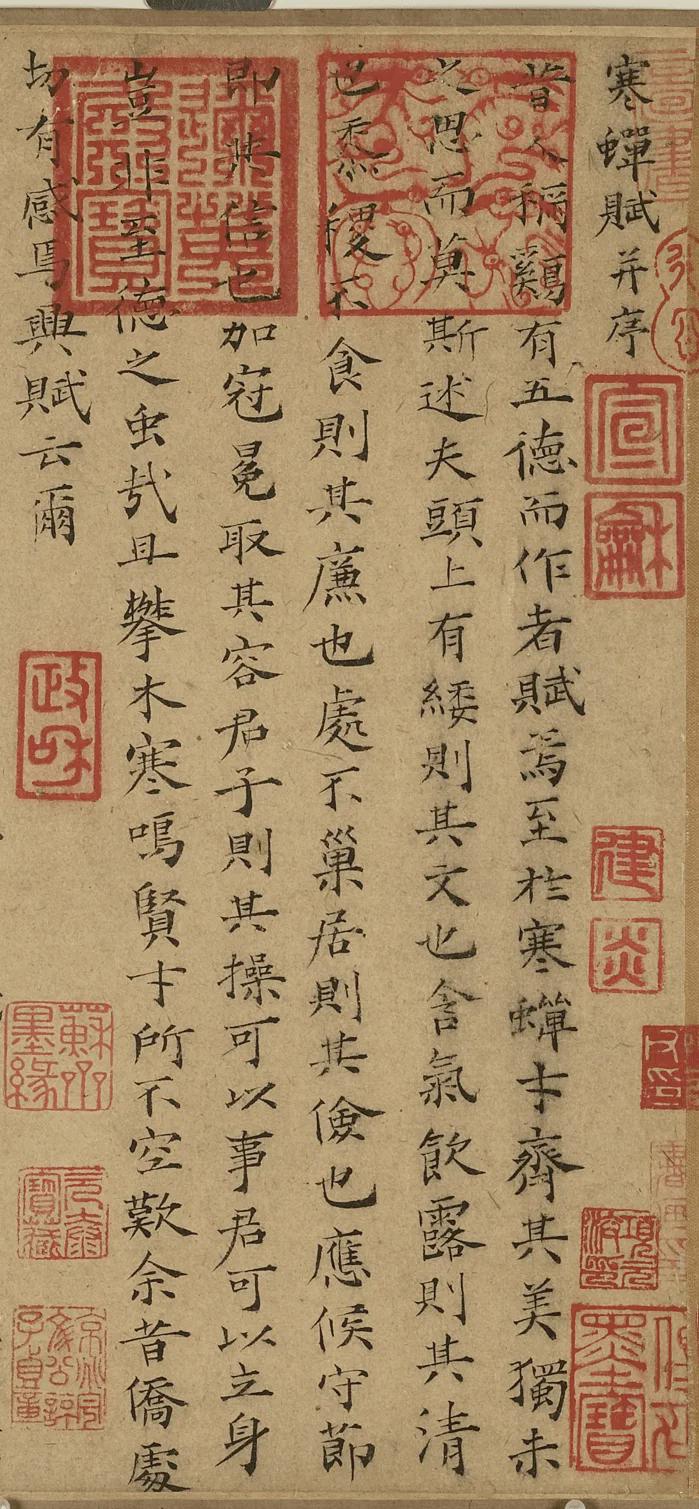 寒蟬賦并序
昔人稱鷄有五德而作者賦焉至於寒蟬才齊其美獨未
之思而莫斯述夫頭上有緌則其文也含氣飲露則其清
也黍稷不食則其廉也處不巢居則其儉也應候守節
即其信也加冠冕取其容君子則其操可以事君可以立身
豈非至德之虫哉且攀木寒鳴賢才所不空歎余昔僑處
切有感焉興賦云爾
宣
龢
建
炎
政和
蘇齋墨緣